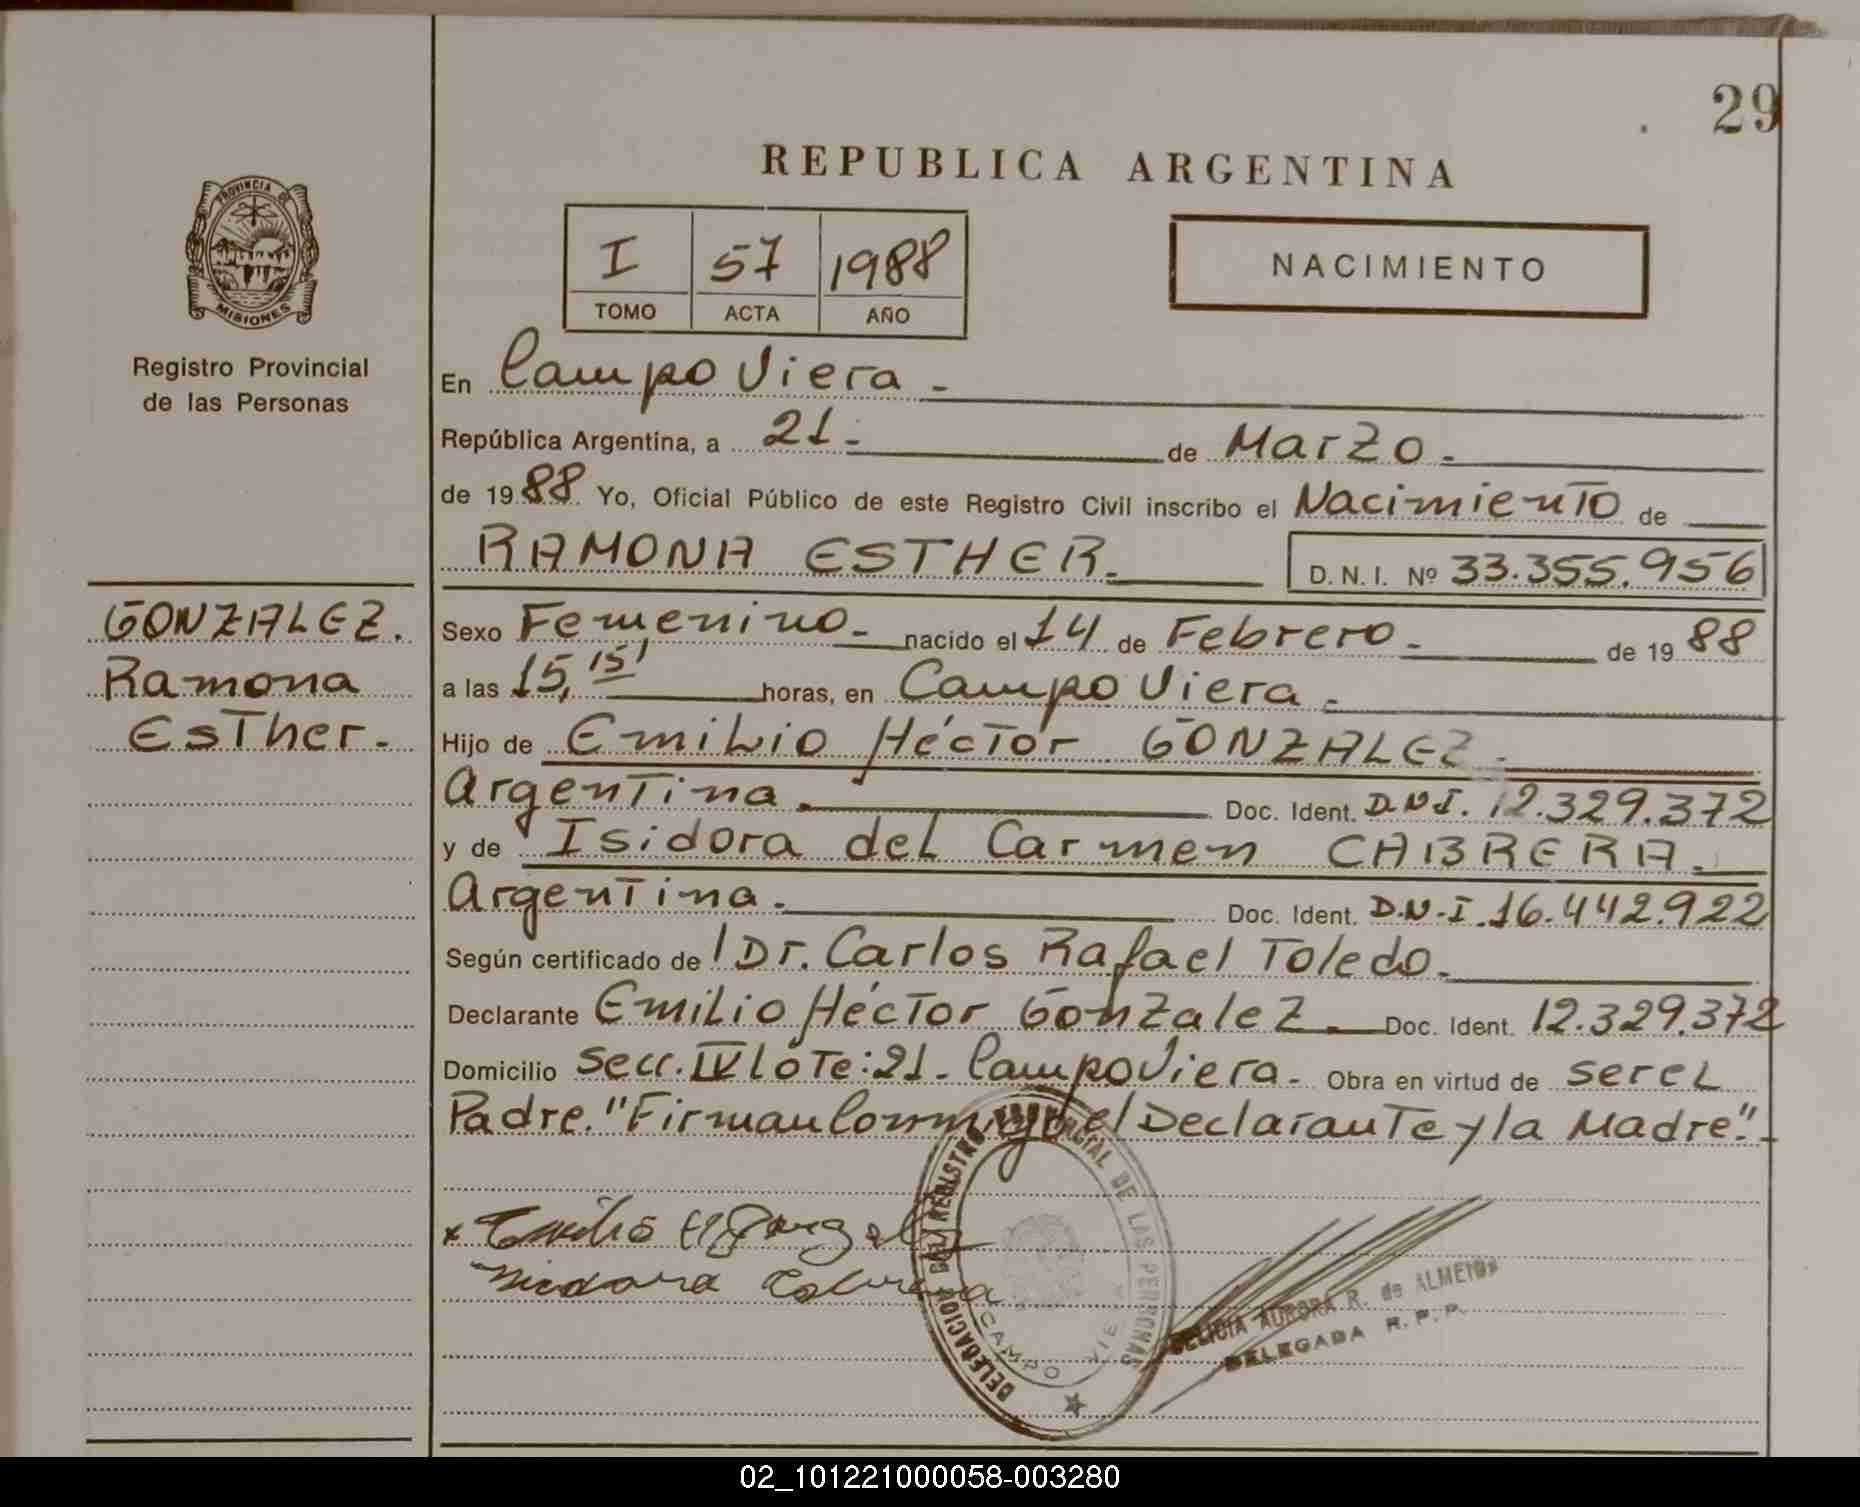 29
REPUBLICA ARGENTINA
PROVINCIA DE
MISIONES
Registro Provincial
de las Personas
I 57 1988
TOMO ACTA AÑO
NACIMIENTO
En Campo Viera -
República Argentina, a 21- de Marzo.
de 1988 Yo, Oficial Público de este Registro Civil inscribo el Nacimiento de
RAMONA ESTHER. D. N. I. Nº 33.355.956
GONZALEZ.
Ramona
Esther.-
Sexo Femenino- nacido el 14 de Febrero- de 1988
a las 15,15' horas, en Campo Viera.
Hijo de Emilio Héctor GONZALEZ.
Argentina. Doc. Ident. D.N.I. 12.329.372
y de Isidora del Carmen CABRERA.
Argentina. Doc. Ident. D.N.I. 16.442.922
Según certificado de Dr. Carlos Rafael Toledo.
Declarante Emilio Héctor Gonzalez. Doc. Ident. 12.329.372
Domicilio Secc. IV lote: 21- Campo Viera- Obra en virtud de ser el
Padre. "Firman Conmigo el Declarante y la Madre".-
DELEGACION DEL REGISTRO PROVINCIAL DE LAS PERSONAS
CAMPO VIERA
DELICIA AURORA R. de ALMEIDA
DELEGADA R. P. P.
02_101221000058-003280